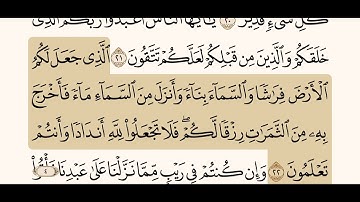 كُلِّ شَىْءٍ قَدِيرٌ ٢٠ يَٰٓأَيُّهَا ٱلنَّاسُ ٱعْبُدُوا۟ رَبَّكُمُ ٱلَّذِى
خَلَقَكُمْ وَٱلَّذِينَ مِن قَبْلِكُمْ لَعَلَّكُمْ تَتَّقُونَ ٢١ ٱلَّذِى جَعَلَ لَكُمُ
ٱلْأَرْضَ فِرَٰشًا وَٱلسَّمَآءَ بِنَآءً وَأَنزَلَ مِنَ ٱلسَّمَآءِ مَآءً فَأَخْرَجَ
بِهِۦ مِنَ ٱلثَّمَرَٰتِ رِزْقًا لَّكُمْ ۖ فَلَا تَجْعَلُوا۟ لِلَّهِ أَندَادًا وَأَنتُمْ
تَعْلَمُونَ ٢٢ وَإِن كُنتُمْ فِى رَيْبٍ مِّمَّا نَزَّلْنَا عَلَىٰ عَبْدِنَا فَأْتُوا۟
٤